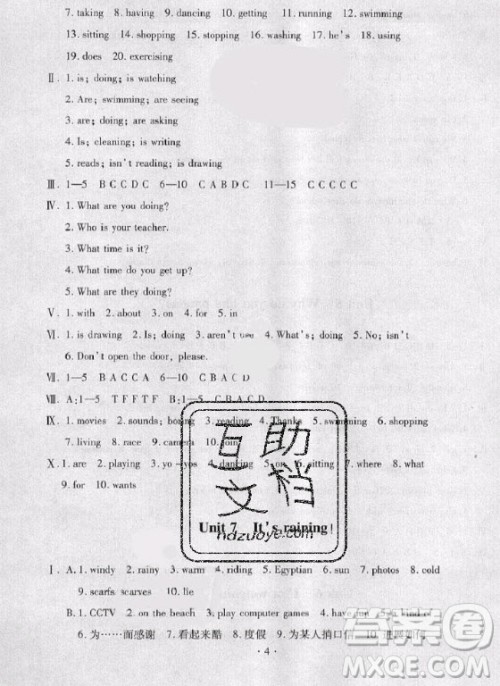 7. taking 8. having 9. dancing 10. getting 11. using 12. swimming
13. sitting 14. shopping 15. stopping 16. washing 17. he's 18. using
19. does 20. exercising
Ⅱ. 1. is; doing; is watching
2. Are; swimming; are seeing
3. are; doing; are asking
4. Is; cleaning; is writing
5. reads; isn't reading; is drawing
Ⅲ. 1—5 BCCDC 6—10 CABCD 11—15 CCCCC
Ⅳ. 1. What are you doing?
2. Who is your teacher.
3. What time is it?
4. What time do you get up?
5. What are they doing?
Ⅴ. 1. with 2. about 3. on 4. for 5. in
Ⅵ. 1. is drawing 2. Is; doing 3. aren't 4. What's; doing 5. No; isn't
6. Don't open the door, please.
Ⅶ. 1—5 BACCA 6—10 CBACD
Ⅷ. A: 1—5 TFFTF B: 1—5 CBACD
Ⅸ. 1. movies 2. sounds; boring 3. reading 4. Thanks 5. swimming 6. shopping
7. living 8. race 9. camera 10. join
Ⅹ. 1. are 2. playing 3. yo-yos 4. dancing 5. or 6. sitting 7. where 8. what
9. for 10. wants
互助
文档
hdzuoye.com
Unit 7 It's raining!
Ⅰ. A. 1. windy 2. rainy 3. warm 4. riding 5. Egyptian 6. sun 7. photos 8. cold
9. scarfs scarves 10. lie
B. 1. CCTV 2. on the beach 3. play computer games 4. have fun 5. a kind of
6. 为……而感谢 7. 看起来酷 8. 度假 9. 为某人捎口信 10. 进展如何
· 4 ·
答案圈
MXQE.COM